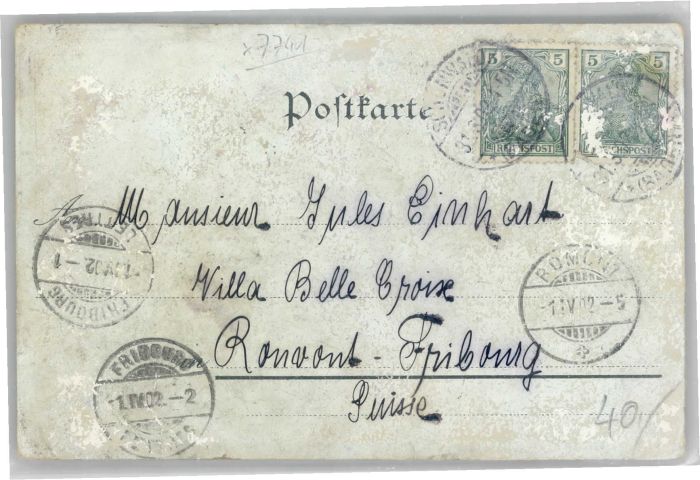 x7741
Postkarte
5 5
5 5
REICHSPOST
REICHSPOST
31.3
(BADEN)
Monsieur Jules Einhart
Villa Belle Croix
Romont-Fribourg
Suisse
LETTRES
1.IV.02 - 1
FRIBOURG
ROMONT
-1.IV.02 - 5
FRIBOURG
-1.IV.02 - 2
40/